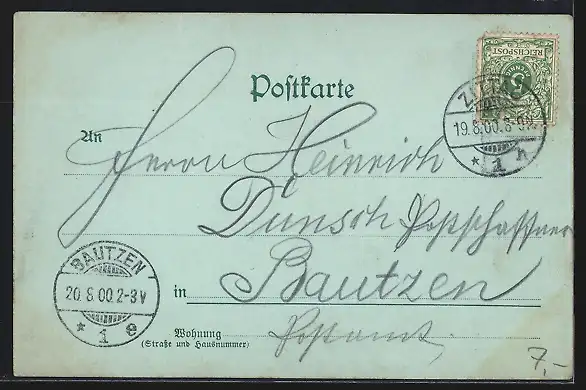 REICHSPOST
5
Postkarte
ZITTAU
19.8.00.8-9N.
* 1 h
An
Herrn Heinrich
Dünsch Postschaffner
in Bautzen
BAUTZEN
20.8.00.2-3V
* 1 e
Wohnung Postamt.
(Straße und Hausnummer)
7,-